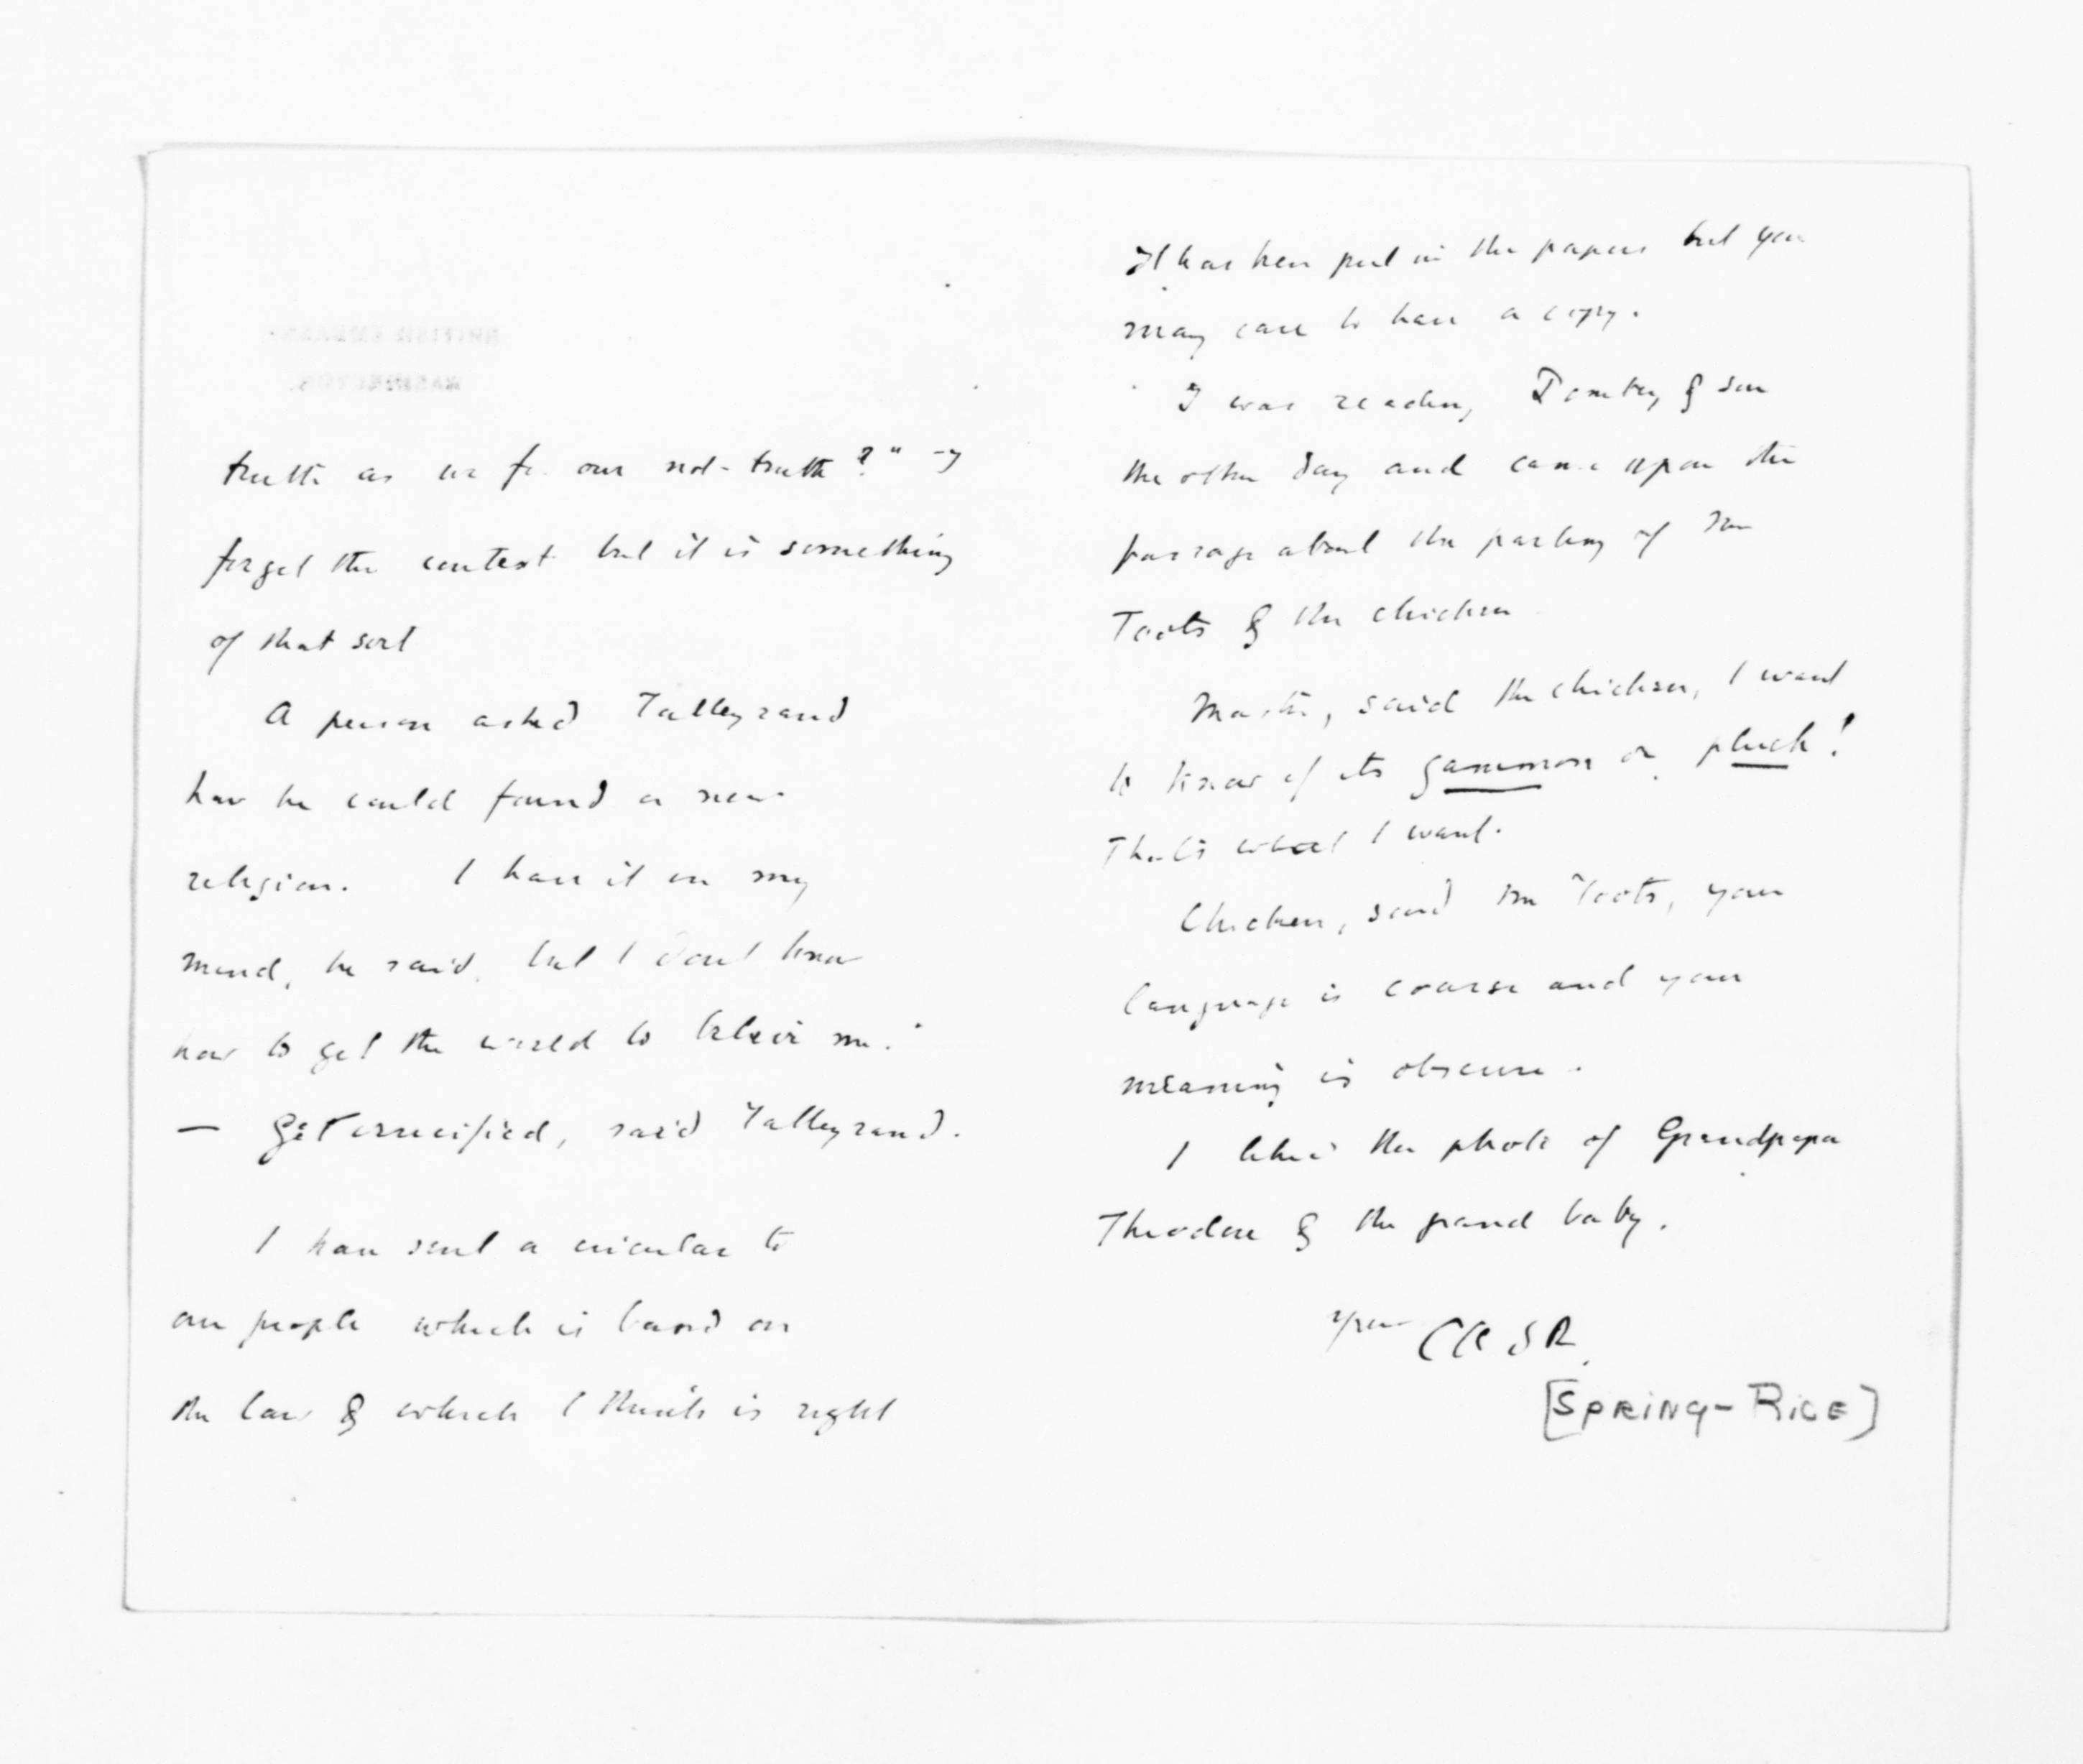 BRITISH EMBASSY
WASHINGTON.
truth as we for our not-truth?" I
forget the context but it is something
of that sort
A person asked Talleyrand
how he could found a new
religion. I have it in my
mind, he said, but I dont know
how to get the world to believe me."
— Get crucified, said Talleyrand.
I have sent a circular to
our people which is based on
the law & which I think is right
It has been put in the papers but you
may care to have a copy.
I was reading Dombey & Son
the other day and came upon the
passage about the parting of Mr
Toots & the chicken
Master, said the chicken, I want
to know if its gammon or pluck!
That's what I want.
Chicken, said Mr Toots, your
language is coarse and your
meaning is obscure.
I liked the photo of Grandpapa
Theodore & the grand baby.
Yours CASR
[SPRING-RICE]